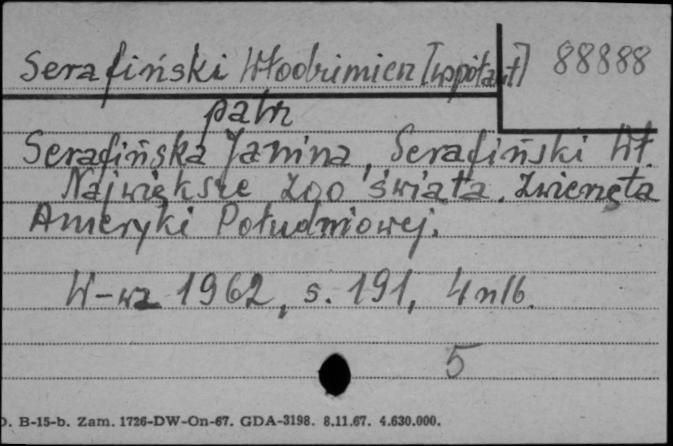 Serafiński Włodzimierz [współaut] 88888
patrz
Serafińska Janina, Serafiński Wł.
Największe zoo świata. Zwierzęta
Ameryki Południowej.
W-wa 1962, s. 191, 4 nlb.
5
D. B-15-b. Zam. 1726-DW-On-67. GDA-3198. 8.11.67. 4.630.000.